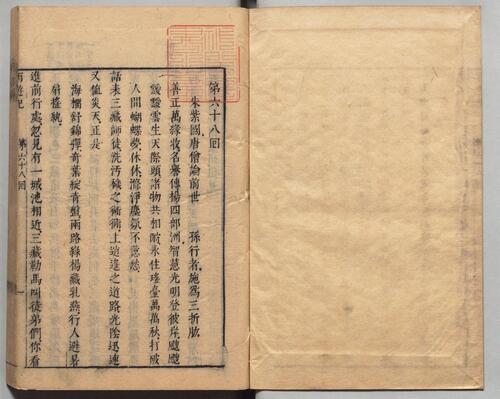 第六十八回
朱紫國唐僧論前世　孫行者施爲三折肱
善正萬緣收名譽傳揚四部洲智慧光明登彼岸颼颼
靉靉雲生天際頭諸物共相酧永住瑤臺萬萬秋打破
人間蝴蝶夢休休滌淨塵氛不惹愁
話表三藏師徒洗汚穢之衚衕上逍遙之道路光陰迅速
又値炎天正是
海榴舒錦彈荷葉綻青盤兩路綠楊藏乳燕行人避暑
扇搖紈
進前行處忽見有一城池相近三藏勒馬叫徒弟們你看
西遊記　第六十八回　一